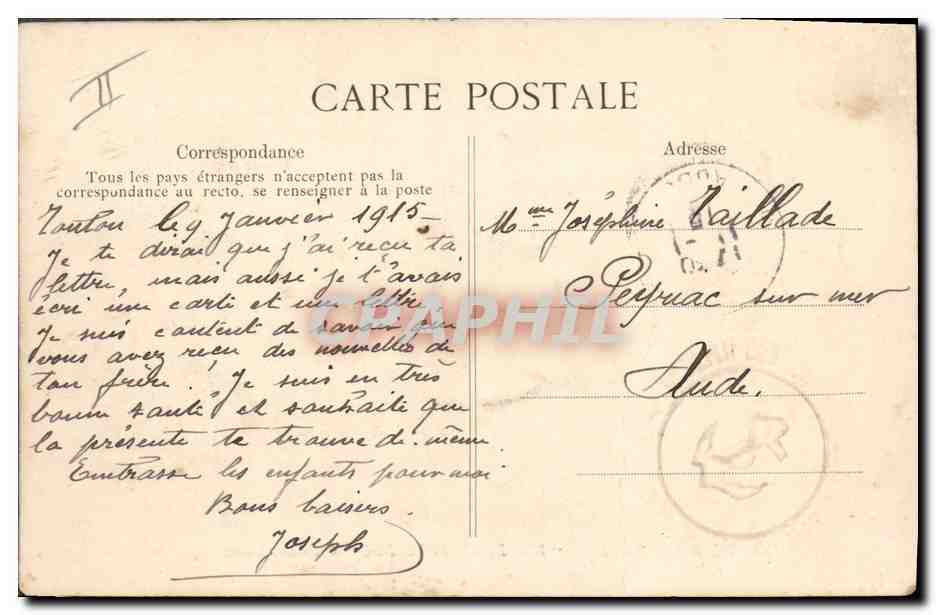 II
CARTE POSTALE
Correspondance
Tous les pays étrangers n'acceptent pas la
correspondance au recto, se renseigner à la poste
Toulon le 9 Janvier 1915 -
Je te dirai que j'ai reçu ta
lettre, mais aussi je t'avais
écri une carte et une lettre
Je suis content de savoir que
vous avez reçu des nouvelles de
ton frère ! Je suis en très
bonne santé et souhaite que
la présente te trouve de même
Embrasse les enfants pour moi
Bons baisers.
Joseph
Adresse
Mme Joséphine Taillade
Peyriac sur mer
Aude.
CPAPHIL